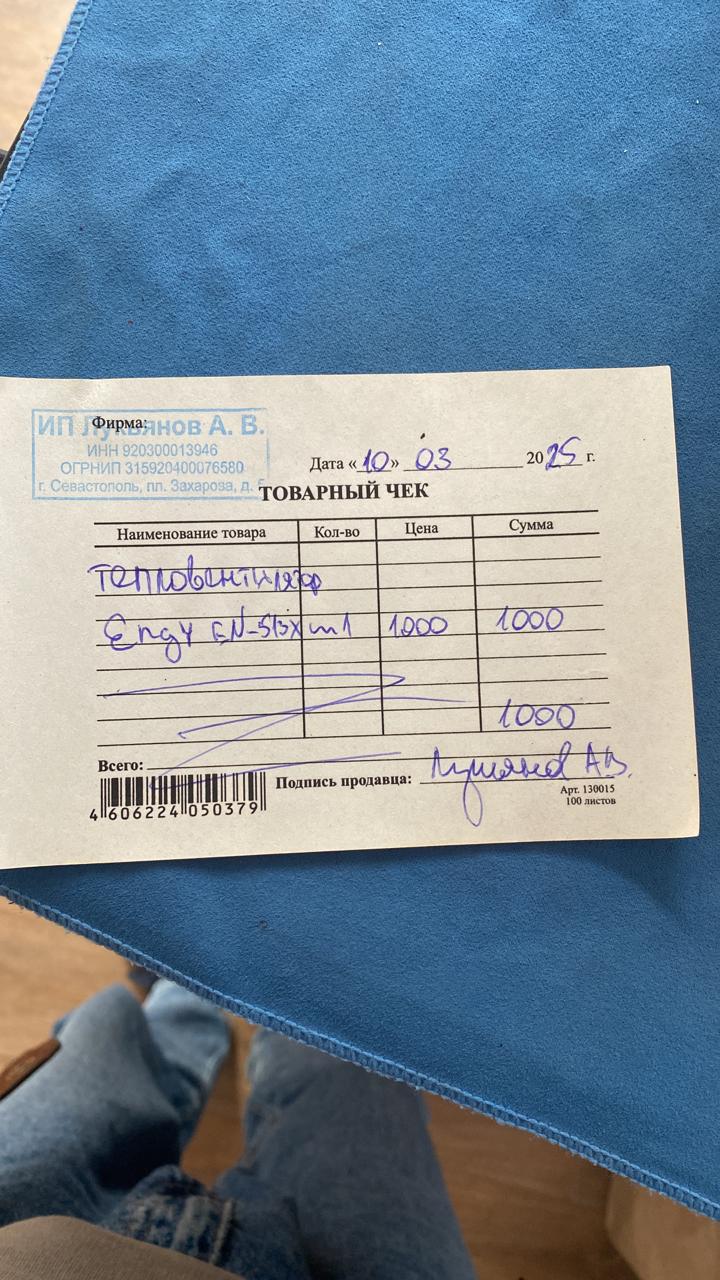 Фирма:
ИП Лукьянов А. В.
ИНН 920300013946
ОГРНИП 315920400076580
г. Севастополь, пл. Захарова, д.
Дата «10» 03 2025 г.
ТОВАРНЫЙ ЧЕК
Наименование товара Кол-во Цена Сумма
Тепловентилятор
Engy EN-513 1 1000 1000
1000
Всего:
Подпись продавца: Лукьянов А.В.
4 606224 050379
Арт. 130015
100 листов